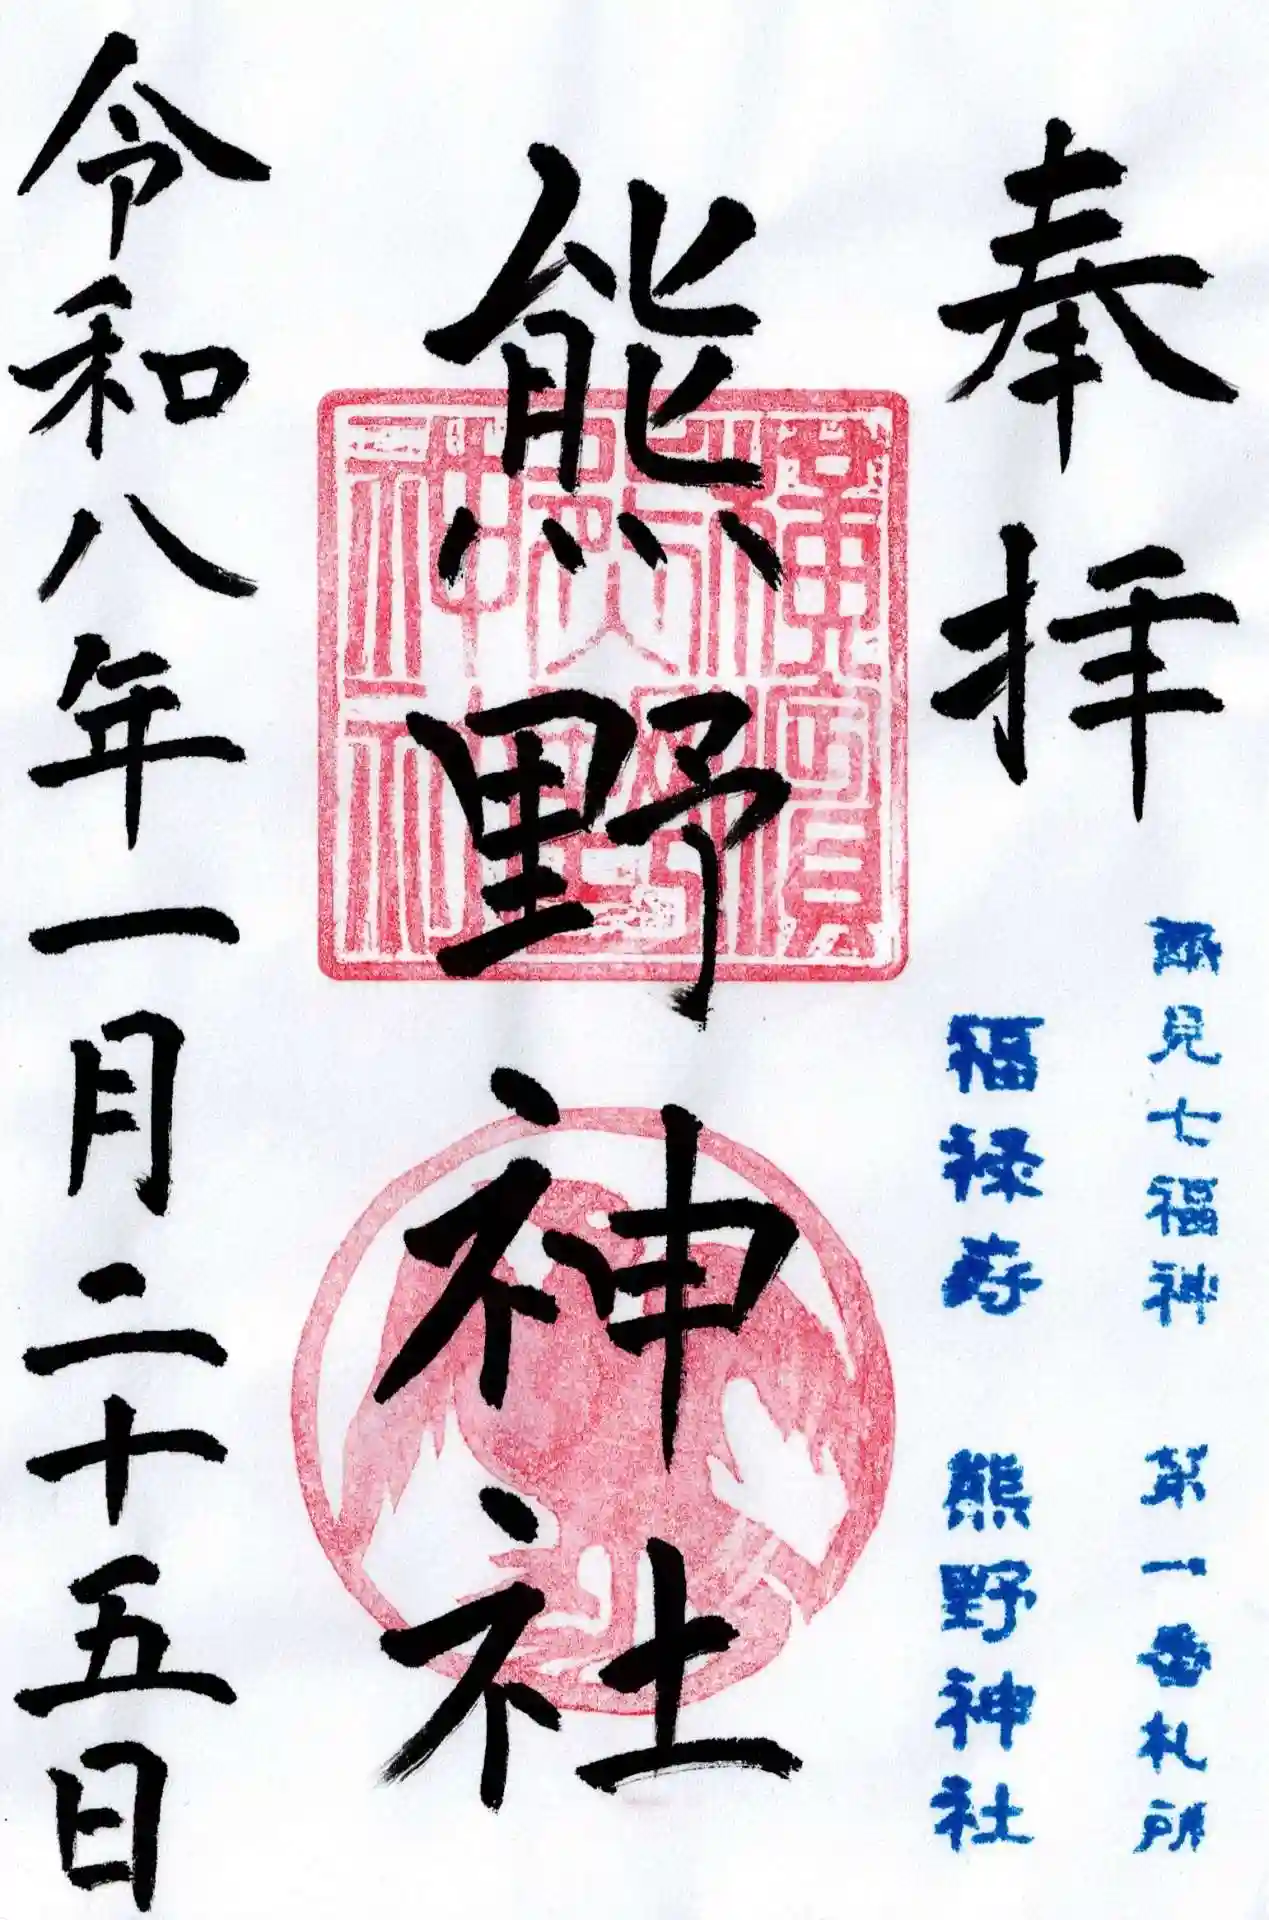 奉拝
鶴見七福神 第一番札所
福禄寿 熊野神社
熊野神社
令和八年一月二十五日